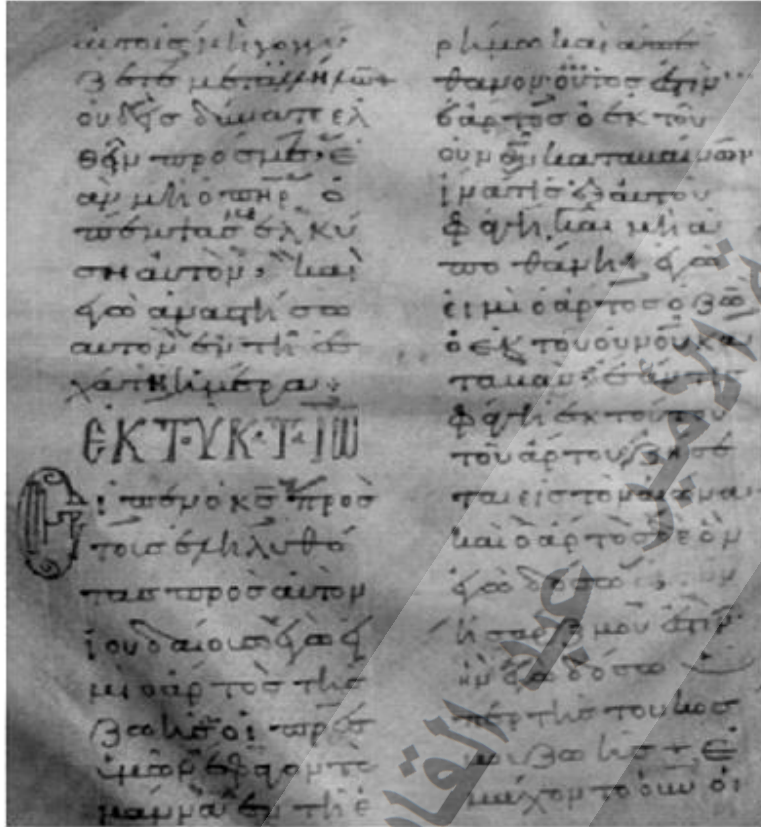 αὐτοῖς μὴ γογγύ
ζετε μετ' ἀλλήλων
οὐδεὶς δύναται ἐλ
θεῖν πρός με, ἐ
ὰν μὴ ὁ πηρ ὁ
πέμψας με ἑλκύ
ση αὐτόν, καὶ
ἐγὼ ἀναστήσω
αὐτὸν ἐν τῆ ἐσ
χάτη ἡμέρα:
ΕΚ Τ· ΥΚ· Τ· ΙΩ
Εἶπεν ὁ κς πρὸς
τοὺς ἐληλυθό
τας πρὸς αὐτὸν
ἰουδαίους ἐγώ εἰ
μι ὁ ἄρτος τῆς
ζωῆς οἱ πρες
ὑμῶν ἔφαγον τὸ
μάννα ἐν τῆ ἐ
ρήμω καὶ ἀπέ
θανον οὗτός ἐστιν
ὁ ἄρτος ὁ ἐκ τοῦ
οὐνοῦ καταβαίνων
ἵνα τις ἐξ αὐτοῦ
φάγη καὶ μὴ ἀ
ποθάνη, ἐγώ
εἰμι ὁ ἄρτος ὁ ζῶν
ὁ ἐκ τοῦ οὐνοῦ κα
ταβάς ἐάν τις
φάγη ἐκ τούτου
τοῦ ἄρτου ζήσε
ται εἰς τὸν αἰῶνα
καὶ ὁ ἄρτος δὲ ὃν
ἐγὼ δώσω
ἡ σάρξ μου ἐστίν
ἣν ἐγὼ δώσω
ὑπὲρ τῆς τοῦ κόσ
μου ζωῆς + ἐ
μάχοντο οὖν οἱ